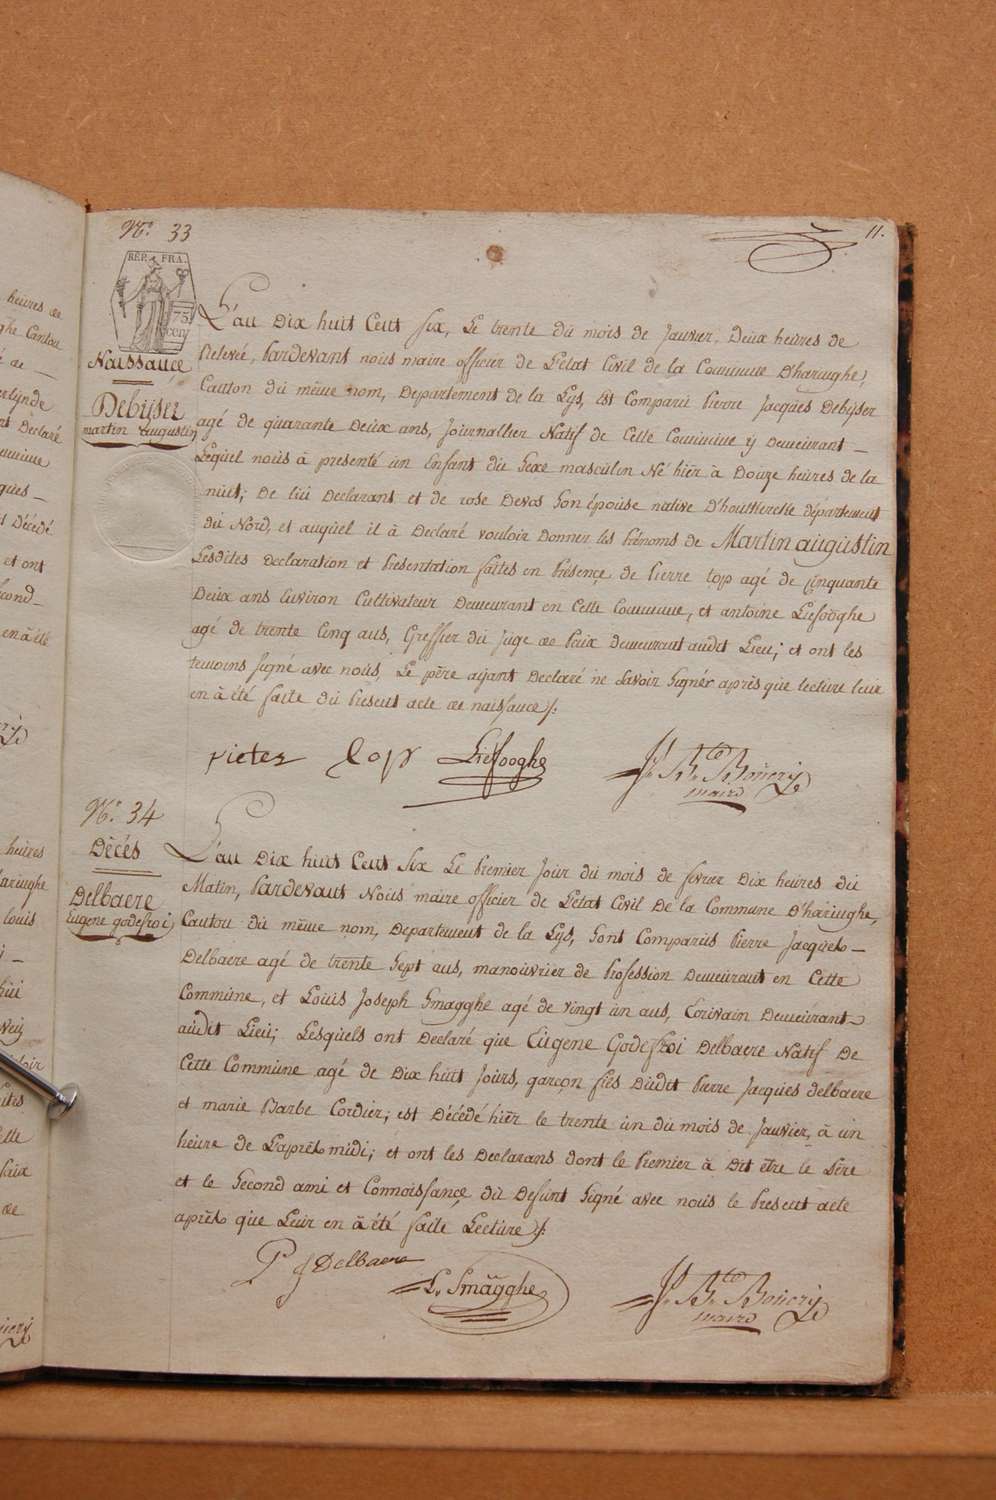 heures de
ghe Canton
de
erlynde
nt Declaré
ommune
gues
Décédé
et ont
cond
en à été
heures
haringhe
louis
lette
Paix
de
N.º 33
11.
REP. FRA.
75
cen
Naissance
Debyser
martin augustin
L'an Dix huit Cent Six, Le trente du mois de Janvier, Deux heures de
Relevée, Pardevant nous maire officier de L'etat Civil de la Commune D'haringhe,
Canton dù même nom, Departement de la Lys, Est Comparù Pierre Jacques Debyser
agé de quarante Deux ans, Journallier Natif de Cette Commune y Demeurant _
Lequel noùs à presenté ùn Enfant dù Sexe masculin Né hier à Douze heures de la
nuit; De lui Declarant et de rose Devos Son épouse native D'houtkercke département
dù Nord, et auquel il à Declaré vouloir Donner les Prénoms de Martin augustin
Lesdites Declaration et Presentation faites en Présence de Pierre top agé de Cinquante
Deux ans Environ Cultivateur Demeurant en Cette Commune, et antoine Liefooghe
agé de trente Cinq ans, Greffier dù Juge de Paix Demeurant audit Lieu; et ont les
temoins Signé avec noùs, Le père ayant Declaré ne Savoir Signer après que lecture leur
en à été faite dù Present acte de naissance ⁄.
pieter top Liefooghe
J. Bte. Bonery
maire
N.º 34
Décés
Delbaere
Eugene godefroi
L'an Dix huit Cent Six Le Premier Jour du mois de fevrier Dix heures dù
Matin, Pardevant Noùs maire officier de L'état Civil De la Commune D'haringhe,
Canton dù même nom, Departement de la Lys, Sont Comparùs Pierre Jacques _
Delbaere agé de trente Sept ans, manouvrier de Profession Demeurant en Cette
Commune, et Louis Joseph Smagghe agé de vingt ùn ans, Ecrivain Demeurant _
audit Lieu; Lesquels ont Declaré que Eugene Godefroi Delbaere Natif De
Cette Commune agé de Dix huit Jours, garçon fils Dùdit Pierre Jacques delbaere
et marie Barbe Cordier; est Décédé hier le trente ùn dù mois de Janvier, à ùn
heure de L'après midi; et ont les Declarans dont le Premier à Dit être le Père
et le Second ami et Connoissançe dù Defunt Signé avec noùs le Present acte
après que Leur en à été faite Lecture ⁄.
P J Delbaere
L. Smagghe
J. Bte. Bonery
maire